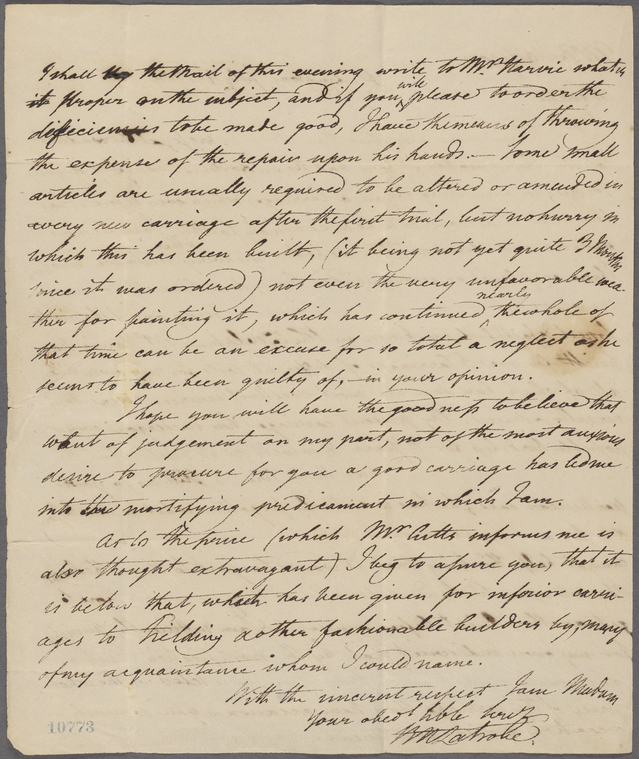 I shall by the Mail of this evening write to Mr. Harvie what is
it proper on the subject, and if you will please to order the
deficiencies to be made good, I have the means of throwing
the expense of the repair upon his hands. — Some small
articles are usually required to be altered or amended in
every new carriage after the first trial, but no hurry in
which this has been built, (it being not yet quite 3 Months
since it was ordered) not even the very unfavorable wea-
ther for painting it, which has continued nearly the whole of
that time can be an excuse for so total a neglect as he
seems to have been guilty of, — in your opinion.
I hope you will have the goodness to believe that
want of judgement on my part, not of the most anxious
desire to procure for you a good carriage has led me
into the mortifying predicament in which I am.
As to the price (which Mr. Cutts informs me is
also thought extravagant) I beg to assure you, that it
is below that, which has been given for inferior carri-
ages to Fielding & other fashionable builders by, many
of my acquaintance whom I could name.
With the sincerest respect I am Madam
Your obedt hble Servt
BHLatrobe.
10773